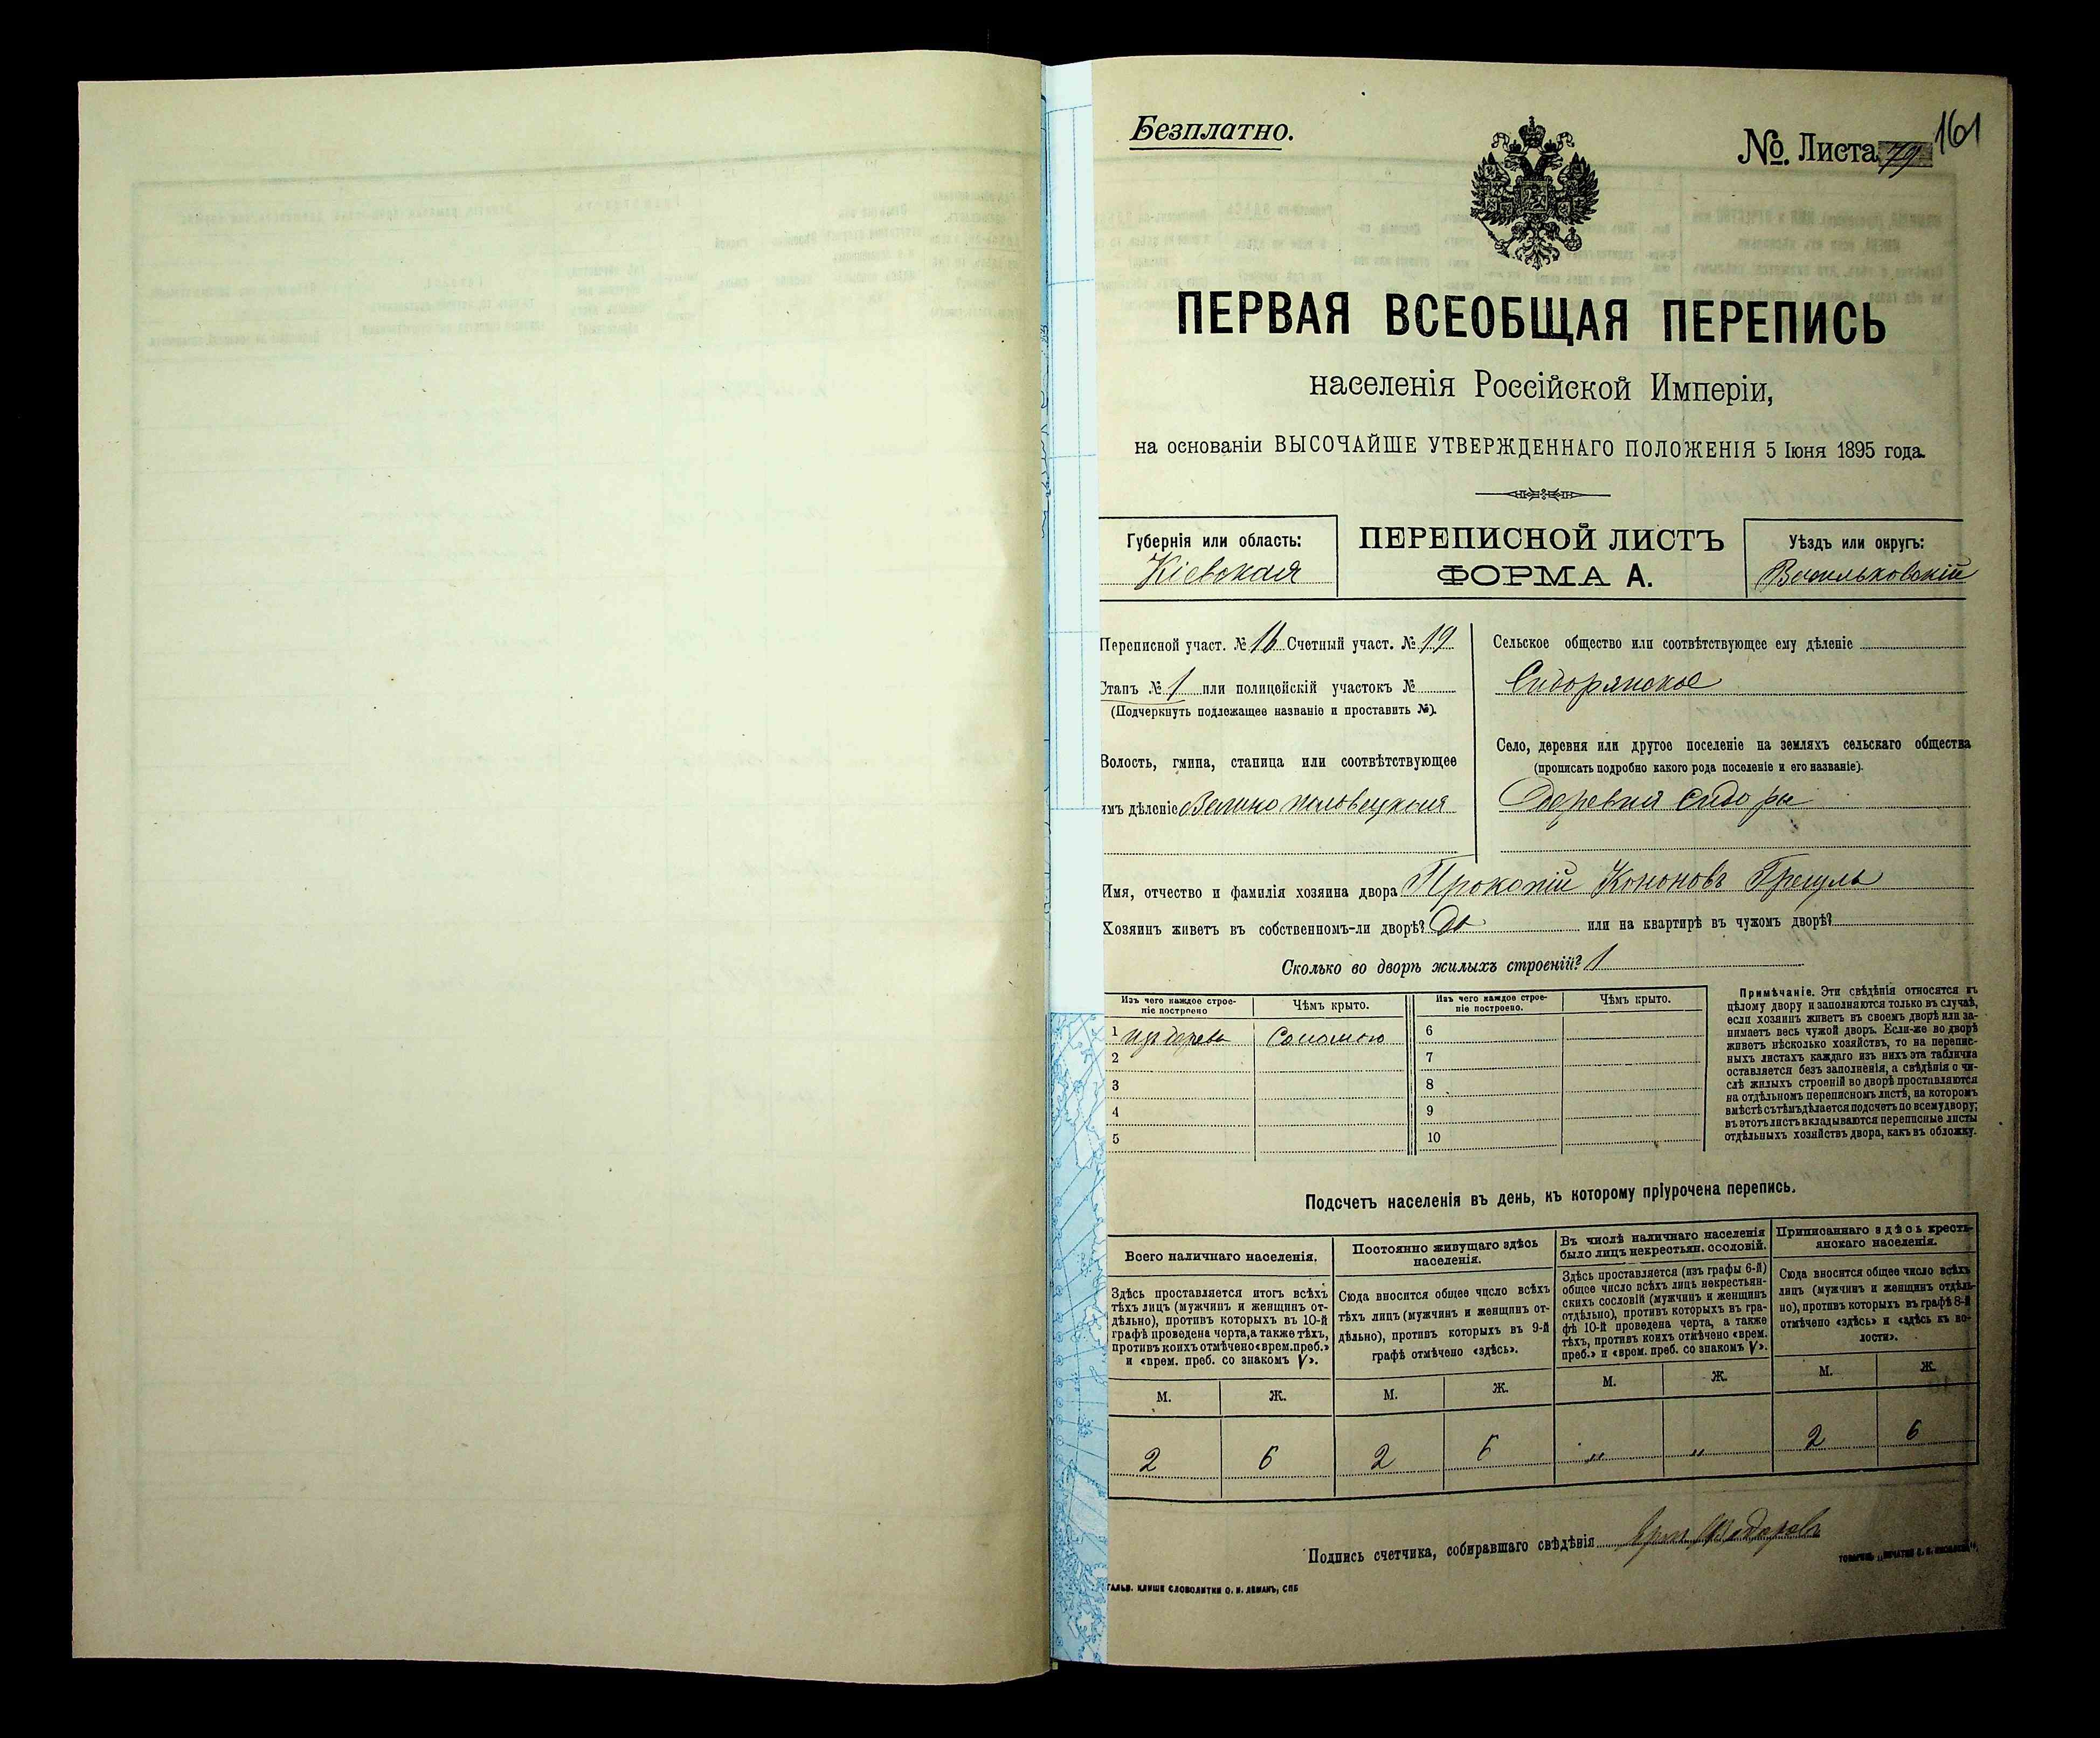 Безплатно.
№. Листа 79 161
ПЕРВАЯ ВСЕОБЩАЯ ПЕРЕПИСЬ
населенія Россійской Имперіи,
на основаніи ВЫСОЧАЙШЕ УТВЕРЖДЕННАГО ПОЛОЖЕНІЯ 5 Іюня 1895 года.
Губернія или область:
Кіевская
ПЕРЕПИСНОЙ ЛИСТЪ
ФОРМА А.
Уѣздъ или округъ:
Васильковскій
Переписной участ. № 16 Счетный участ. № 19
Станъ № 1 или полицейскій участокъ №
(Подчеркнуть подлежащее названіе и проставить №).
Волость, гмина, станица или соотвѣтствующее
имъ дѣленіе Велико половецкая
Сельское общество или соотвѣтствующее ему дѣленіе
Сидорянское
Село, деревня или другое поселеніе на земляхъ сельскаго общества
(прописать подробно какого рода поселеніе и его названіе).
деревня Сидоры
Имя, отчество и фамилія хозяина двора Прокопій Кононовъ
Хозяинъ живетъ въ собственномъ-ли дворѣ? Да или на квартирѣ въ чужомъ дворѣ?
Сколько во дворѣ жилыхъ строеній? 1
Изъ чего каждое строе-
ніе построено
Чѣмъ крыто.
Изъ чего каждое строе-
ніе построено.
Чѣмъ крыто.
1 изъ дерева Соломою 6
2 7
3 8
4 9
5 10
Примѣчаніе. Эти свѣдѣнія относятся къ
цѣлому двору и заполняются только въ случаѣ,
если хозяинъ живетъ въ своемъ дворѣ или за-
нимаетъ весь чужой дворъ. Если-же во дворѣ
живетъ нѣсколько хозяйствъ, то на перепис-
ныхъ листахъ каждаго изъ нихъ эта табличка
оставляется безъ заполненія, а свѣдѣнія о чи-
слѣ жилыхъ строеній во дворѣ проставляются
на отдѣльномъ переписномъ листѣ, на которомъ
вмѣстѣ съ тѣмъ дѣлается подсчетъ по всему двору;
въ этотъ листъ вкладываются переписные листы
отдѣльныхъ хозяйствъ двора, какъ въ обложку.
Подсчетъ населенія въ день, къ которому пріурочена перепись.
Всего наличнаго населенія.
Здѣсь проставляется итогъ всѣхъ
тѣхъ лицъ (мужчинъ и женщинъ от-
дѣльно), противъ которыхъ въ 10-й
графѣ проведена черта, а также тѣхъ,
противъ коихъ отмѣчено «врем. преб.»
и «врем. преб. со знакомъ V».
Постоянно живущаго здѣсь
населенія.
Сюда вносится общее число всѣхъ
тѣхъ лицъ (мужчинъ и женщинъ от-
дѣльно), противъ которыхъ въ 9-й
графѣ отмѣчено «здѣсь».
Въ числѣ наличнаго населенія
было лицъ некрестьян. сословій.
Здѣсь проставляется (изъ графы 6-й)
общее число всѣхъ лицъ некрестьян-
скихъ сословій (мужчинъ и женщинъ
отдѣльно), противъ которыхъ въ гра-
фѣ 10-й проведена черта, а также
тѣхъ, противъ коихъ отмѣчено «врем.
преб.» и «врем. преб. со знакомъ V».
Приписаннаго здѣсь кресть-
янскаго населенія.
Сюда вносится общее число всѣхъ
лицъ (мужчинъ и женщинъ отдѣль-
но), противъ которыхъ въ графѣ 8-й
отмѣчено «здѣсь» и «здѣсь къ во-
лости».
М. Ж. М. Ж. М. Ж. М. Ж.
2 6 2 6 " " 2 6
Подпись счетчика, собиравшаго свѣдѣнія
ГАЛЬВ. КЛИШЕ СЛОВОЛИТНИ О. И. ЛЕМАНЪ, СПБ